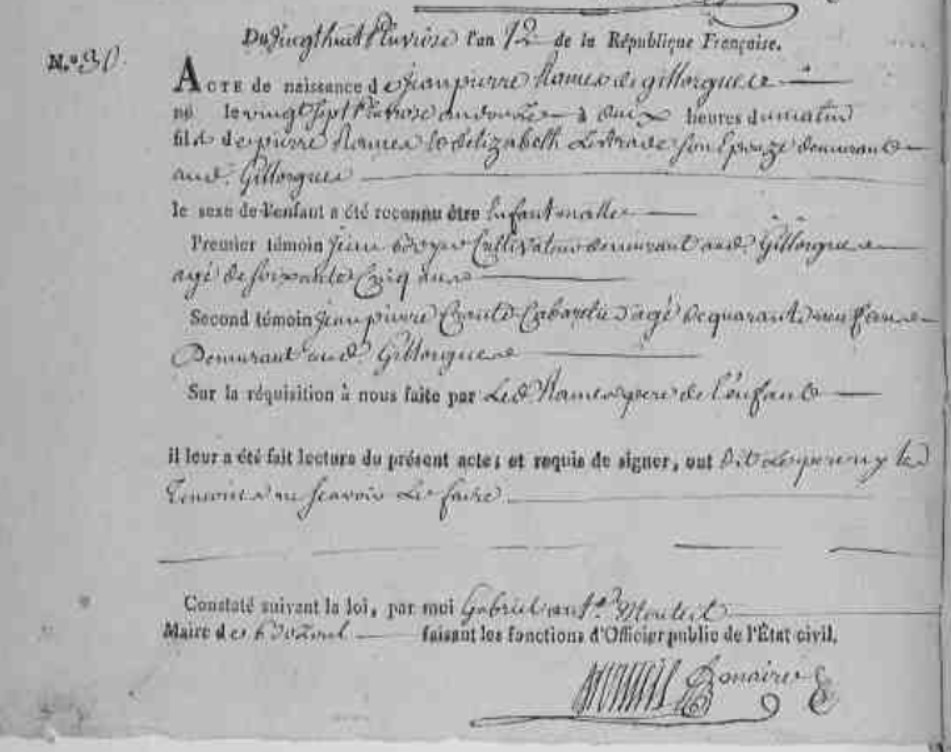 Du vingt huit Pluviose l'an 12 de la République Française.
N.º 30
ACTE de naissance de jean pierre de gillorgues
né le vingt sept Pluviose an douze à heures du matin
fils de pierre et delizabeth Lestrade son Epouze demurant
aud. Gillorgues
le sexe de l'enfant a été reconnu être Enfant malle
Premier témoin jean Cultivateur demurant aud. Gillorgues
agé de soixante Cinq ans
Second témoin jean pierre Cabaretier agé de quarante neuf ans
Demurant aud. Gillorgues
Sur la réquisition à nous faite par Led. pere de l'enfant
il leur a été fait lecture du présent acte; et requis de signer, ont dit Le pere ny les
Temoins ne scavoir Le faire
Constaté suivant la loi, par moi Gabriel ant.e Monteil
Maire de faisant les fonctions d'Officier public de l'État civil.
monteil maire